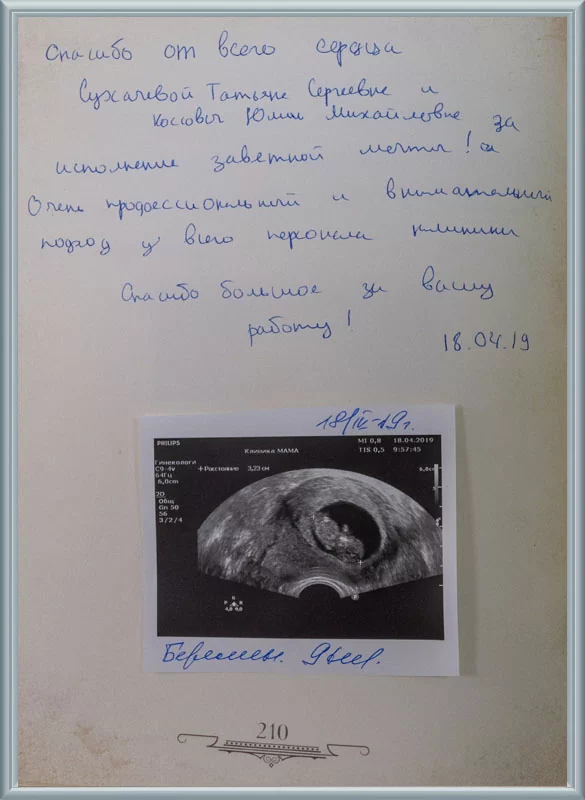 Спасибо от всего сердца
Сухачевой Татьяне Сергеевне и
Коссович Юлии Михайловне за
исполнение заветной мечты!
Очень профессиональный и внимательный
подход у всего персонала клиники
Спасибо большое за вашу
работу!
18.04.19
PHILIPS
MI 0,8 18.04.2019
Клиника МАМА
TIS 0,5 9:57:45
Гинекологи
C9-4v
64Гц
6,0cm
+Расстояние 3,23 см
6,0см
2D
Общ
Gn 50
56
3/2/4
Беремен.
210